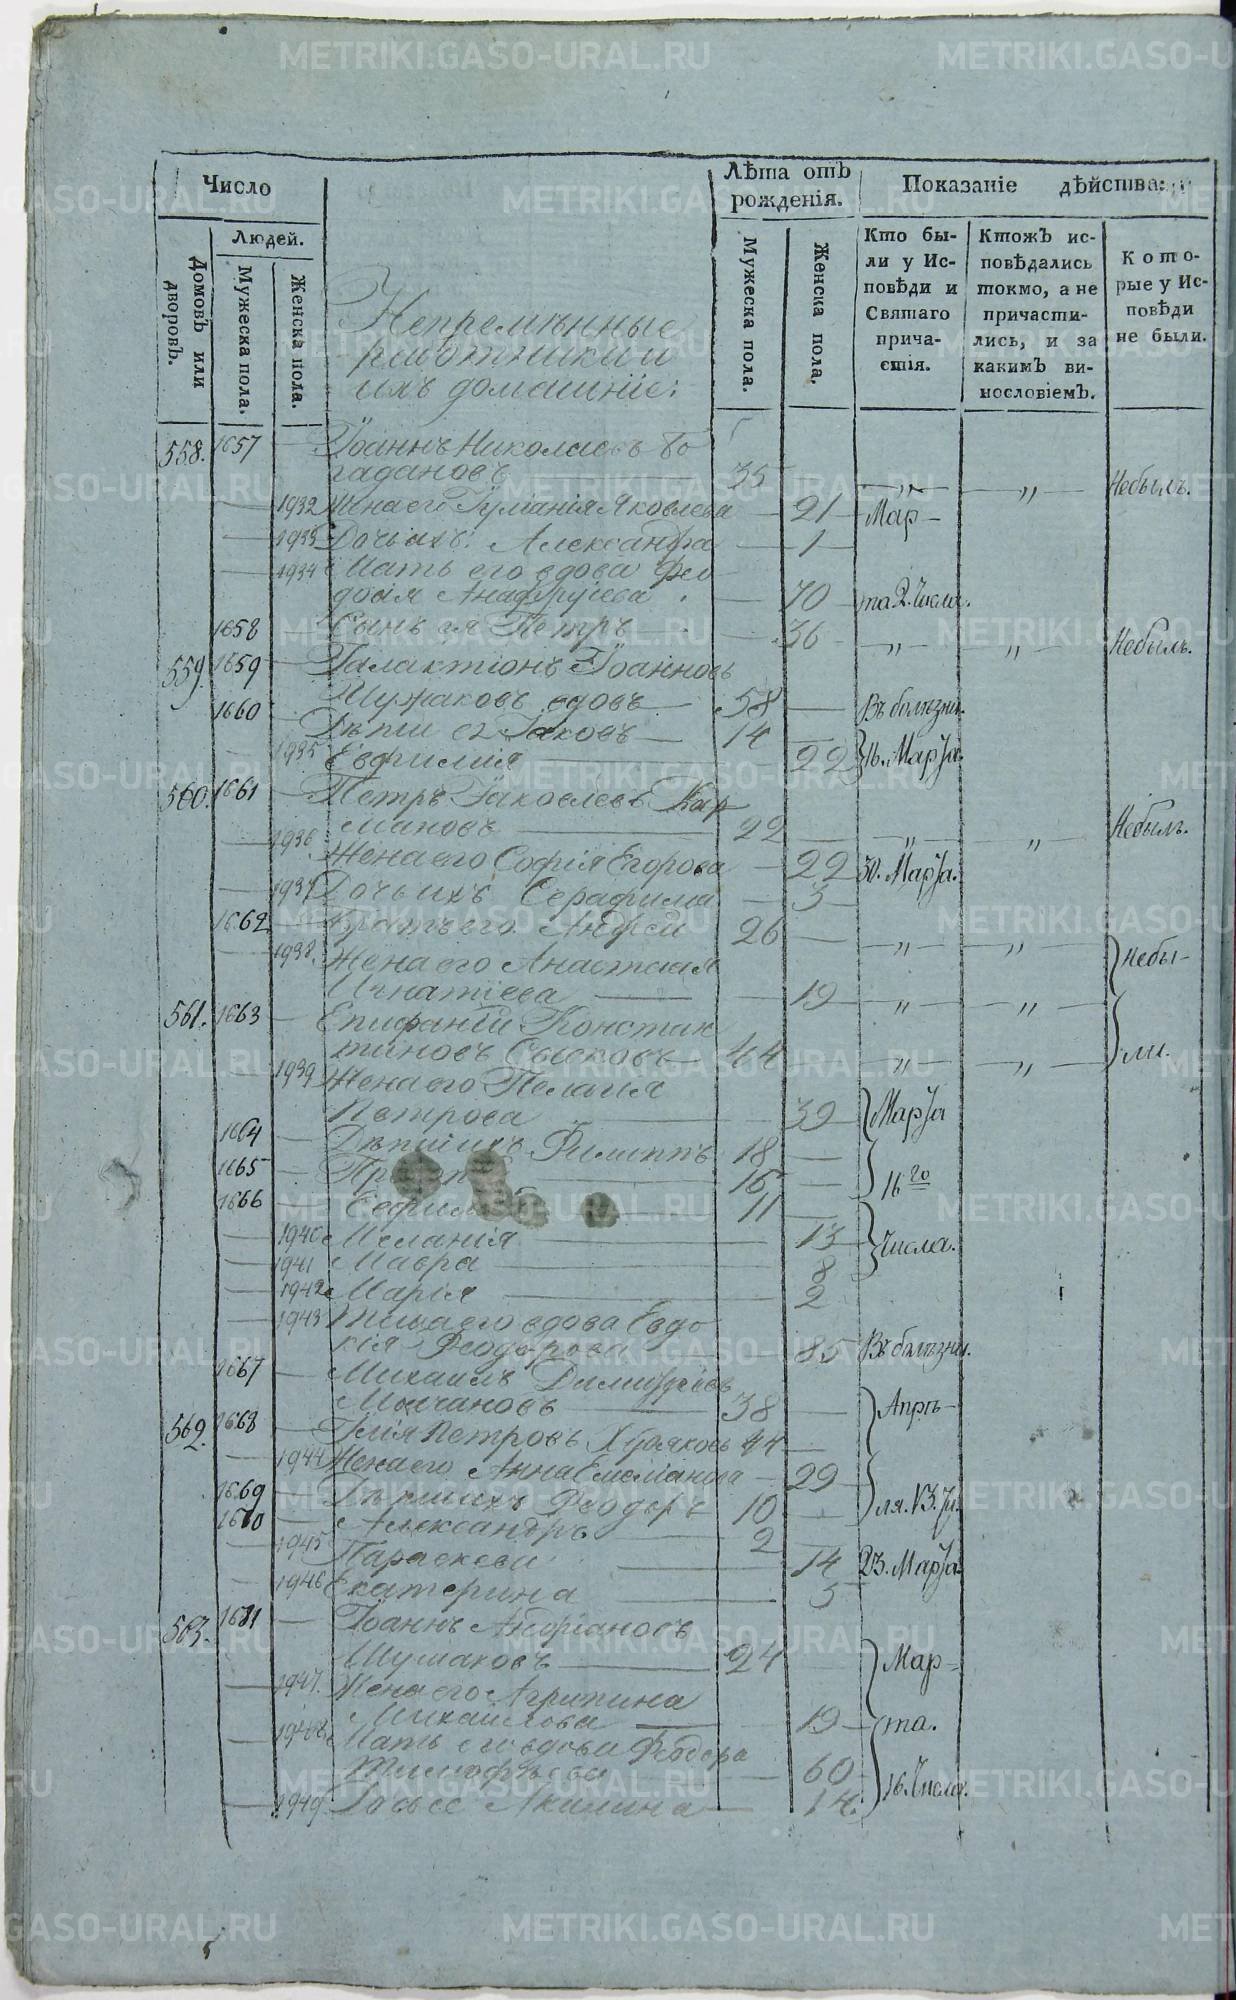 Число
Лѣта отъ рожденія.
Показаніе дѣйства:
Домовъ или дворовъ.
Людей.
Мужеска пола.
Женска пола.
Мужеска пола.
Женска пола.
Кто были у Исповѣди и Святаго причастія.
Ктожъ исповѣдались токмо, а не причастились, и за какимъ винословіемъ.
Которые у Исповѣди не были.
Непремѣнные
работники и
ихъ домашніе:
558. 1657 — Іоаннъ Николаевъ Бо
гадановъ 35 — „ — „ — Небылъ.
— 1932 Жена его Іуліанія Яковлева — 21 — Мар-
— 1933 Дочь ихъ: Александра — 1 —
— 1934 Мать его вдова Фео
досья — 70 — та 2. Числа.
1658 — Сынъ ея Петръ — 36 — „ — „ — Небылъ.
559. 1659 — Галактіонъ Іоанновъ
вдовъ — 58 — Въ болѣзни.
1660 — Дѣти ег Іаковъ — 14 —
— 1935 Евфимія — 22 16. Марта.
560. 1661 — Петръ Іаковлевъ Кар
мановъ — 22 — „ — „ — Небылъ.
— 1936 Жена его Софія Егорова — 22 30. Марта.
— 1937 Дочь ихъ Серафима — 3 —
1662 — Братъ его Андрей 26 — „ — „ — Небы-
— 1938. Жена его Анастасія
Игнатіева — 19 — „ — „ —
561. 1663 — Епифаній Констан
тиновъ — 44 — „ — „ — ли.
— 1939 Жена его Пелагія
Петрова — 39 Марта
1664 — Дѣти ихъ Филиппъ 18 —
1665 — 16 — 16го
1666 — 11 —
— 1940 Меланія — 13 — Числа.
— 1941 Мавра — 8
— 1942 Марія — 2
— 1943 вдова Евдо
кія Феодорова — 85 Въ болѣзни.
1667 — Михаилъ Димитріевъ
Молчановъ — 38 — Апрѣ-
562. 1668 — Илія Петровъ Худяковъ 44 —
— 1944 Жена его Анна — 29 —
1669 — Дѣти ихъ Феодоръ 10 — ля. 13. Ч.
1670 — Александръ — 2
— 1945 Параскева — 14 23. Марта.
— 1946 Екатерина — 5
563. 1671 — Іоаннъ Андріановъ
Шумаковъ — 24 Мар-
— 1947. Жена его Агрипина
Михаилова — 19 — та.
— 1948 Мать его вдова Феодора
Тимофѣева — 60
— 1949. Дочь ее Акилина — 14. 16. Числа.
METRIKI.GASO-URAL.RU